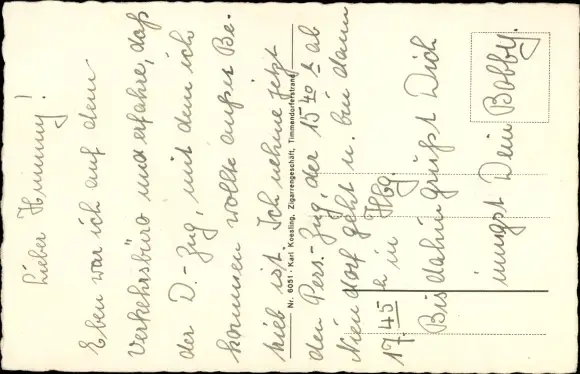 Lieber Hummy!
Eben war ich auf dem
Verkehrsbüro und erfahre, daß
der D.-Zug, mit dem ich
kommen wollte außer Be-
trieb ist. Ich nehme jetzt
Nr. 6051 · Karl Koesling, Zigarrengeschäft, Timmendorferstrand
den Pers.-Zug, der 15 40 h ab
Niendorf geht u. bin dann
17 45 h in Hbg.
Bis dahin grüßt Dich
innigst Dein Bobby.